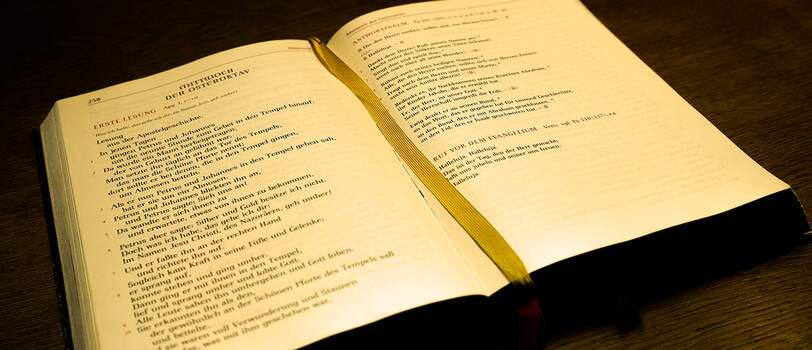 258
MITTWOCH
DER OSTEROKTAV
ERSTE LESUNG Apg 3, 1–10
Was ich habe, das gebe ich dir: im Namen Jesu, geh umher!
Lesung
aus der Apostelgeschichte.
In jenen Tagen
gingen Petrus und Johannes
um die neunte Stunde zum Gebet in den Tempel hinauf.
Da wurde ein Mann herbeigetragen,
der von Geburt an gelähmt war.
Man setzte ihn täglich an das Tor des Tempels,
das man die Schöne Pforte nennt;
dort sollte er bei denen, die in den Tempel gingen,
um Almosen betteln.
Als er nun Petrus und Johannes in den Tempel gehen sah,
bat er sie um ein Almosen.
Petrus und Johannes blickten ihn an,
und Petrus sagte: Sieh uns an!
Da wandte er sich ihnen zu
und erwartete, etwas von ihnen zu bekommen.
Petrus aber sagte: Silber und Gold besitze ich nicht.
Doch was ich habe, das gebe ich dir:
Im Namen Jesu Christi, des Nazoräers, geh umher!
Und er faßte ihn an der rechten Hand
und richtete ihn auf.
Sogleich kam Kraft in seine Füße und Gelenke;
er sprang auf,
konnte stehen und ging umher.
Dann ging er mit ihnen in den Tempel,
lief und sprang umher und lobte Gott.
Alle Leute sahen ihn umhergehen und Gott loben.
Sie erkannten ihn als den,
der gewöhnlich an der Schönen Pforte des Tempels saß
und bettelte.
und sie waren voll Verwunderung und Staunen
das, was mit ihm geschehen war.
Mittwoch der Osteroktav
ANTWORTPSALM
Die den Herrn suchen, sollen sich von Herzen freuen.
Halleluja.
Dankt dem Herrn! Ruft seinen Namen an! *
Macht unter den Völkern seine Taten bekannt!
Singt ihm und spielt ihm, *
sinnt nach über all seine Wunder!
Rühmt euch seines heiligen Namens! *
Alle, die den Herrn suchen, sollen sich von Herzen freuen.
Fragt nach dem Herrn und seiner Macht; *
sucht sein Antlitz allezeit!
Bedenkt es, ihr Nachkommen seines Knechtes Abraham, *
ihr Kinder Jakobs, die er erwählt hat.
Er, der Herr, ist unser Gott. *
Seine Herrschaft umgreift die Erde.
Ewig denkt er an seinen Bund, *
an das Wort, das er gegeben hat für tausend Geschlechter,
an den Bund, den er mit Abraham geschlossen, *
an den Eid, den er Isaak geschworen hat.
RUF VOR DEM EVANGELIUM Vers: vgl. Ps 118 (117), 24
Halleluja. Halleluja.
Das ist der Tag, den der Herr gemacht;
laßt uns jubeln und seiner uns freuen.
Halleluja.